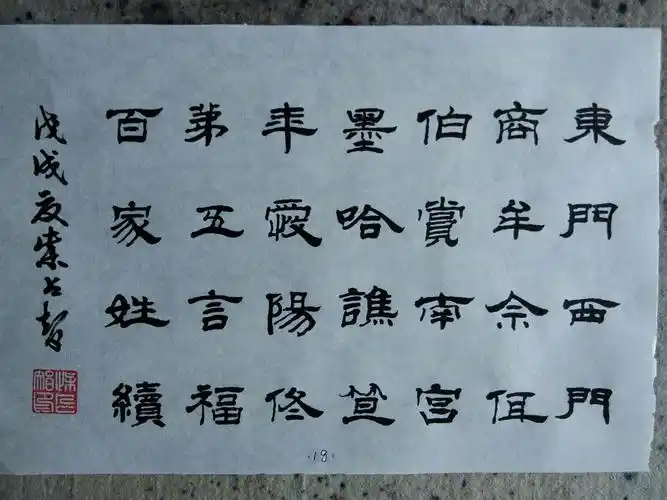 東門西門
商牟佘佴
伯賞南宮
墨哈譙笪
年愛陽佟
第五言福
百家姓續
戊戌夏柴
·18·